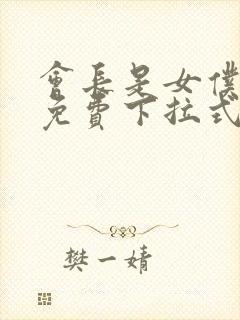 會長是女僕
免費下拉式
樊一婧